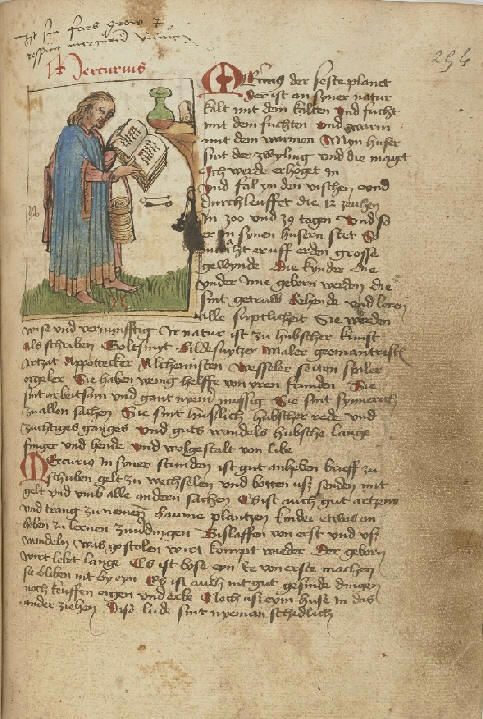 294
Mercurius
Mercurius der sehste planet
Der ist an syner natur
kalt mit dem kalten Vnd fucht
mit dem fuchten Vnd warm
mit dem warmen Myn huser
sint der zwyling vnd die magt
Ich werde erhoget in
Vnd fal zu den vischen vnd
durchlauffet die 12 zeichen
in 300 und 39 tagen Vnd so
er in synen husern stet So
macht er uff erden grosse
gewynde Die kinder die
vnder mir geborn werden die
sint getruw behende vnd leren
alle suptlichkeit Sie werden
wise vnd vernunfftig Ir natur ist zu hubscher kunst
als schriben Golt smyt Bilde snytzer Maler geomantristen
Artzat Appotecker Alchemisten Wesseler seiten spiler
orgeler Sie haben wenig helffe von yren frunden Sie
sint arbeitsam vnd gant nyem mussig Sie sint synnerich
zu allen sachen Sie sint huslich hubscher rede vnd
zuchtiges ganges Vnd guts wandels hubsche lange
finger vnd hende Vnd wolgestalt von libe
Mercurius in syner stunden ist gut anheben brieff zu
schriben gelt zu wechselen vnd botten usz senden mit
gelt vnd vmb alle andern sachen Es ist auch gut artzeny
vnd trang zu nemen baume plantzen kinder etwas an
heben zu lernen Byslaffen von erst vnd usz
wandeln was gestolen wirt kompt wieder Der geborn
wirt lebet lange Es ist bose eyn ee von erste machen
sie bliben nit by eyn Es ist auch nit gut gesinde dingen
noch keuffen eigen vnd erbe Noch usz eym husz in das
ander ziehen Dise lude sint nyeman schedlich